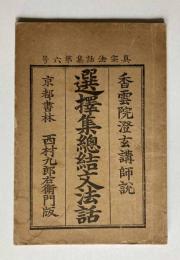 真宗法話集第六号
香雲院澄玄講師説
選擇集總結文法話
京都書林 西村九郎右衞門版